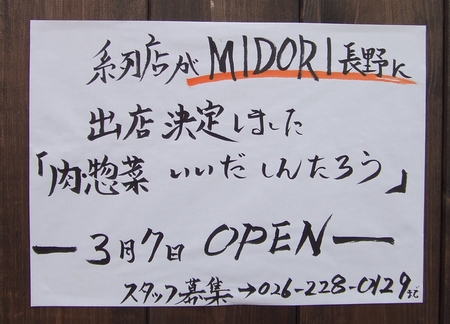 系列店がMIDORI長野に
出店決定しました
「肉惣菜 いいだしんたろう」
ー3月7日 OPENー
スタッフ募集→026-228-0129まで